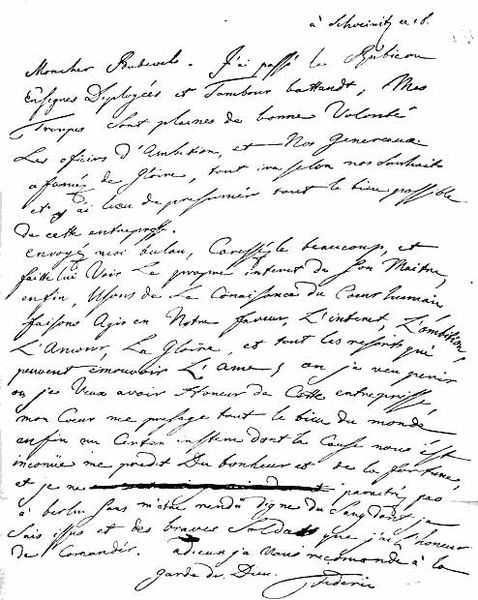 à Schweinitz ce 16.
Moncher Podewels. J'ai passé le Rubicon
Enseignes Deployées et Tambour battandt, Mes
Troupes sont pleines de bonne Volonté
Les officirs d'Ambition, et Nos Generaux
afamés de Gloire, tout ira selon nos Souhaits
et j'ai lieu de presumér tout le bien possible
de cette entreprisse.
envoyé moi bulau, Caressé le beaucoup, et
faite lui Voir Le propre interet de Son Maitre,
enfin, Usons de La Conaissance du Coeur humain
faisons Agir en Notre faveur, L'interet, L'ambition,
L'Amour, La Gloire, et tout les ressorts qui
peuvent émouvoir L'ame; ou je veu perir
ou je Veux avoir Honeur de Cette entreprisse
mon Coeur me presage tout le bien du monde
enfin un Certain instenc dont la Cause nous est
inconüe me predit Du bonheur et de la fortune,
et je ne paraitré pas
à berlin sans m'etre rendü digne du Sang dont je
Suis issus et des braves Soldats que j'ai L'honeur
de Comandér. adieux je Vous recomande à la
garde de Dieu. Federic